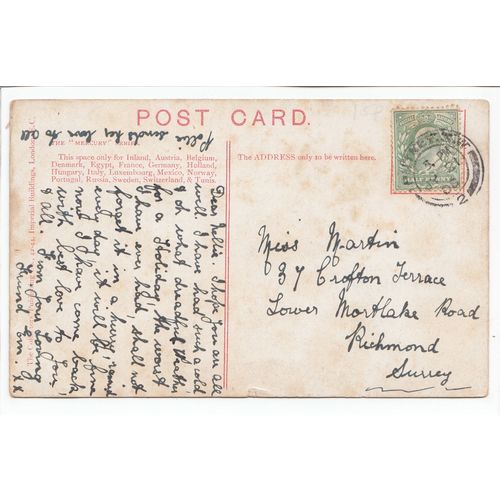 POST CARD.
THE "MERCURY" SERIES
This space only for Inland, Austria, Belgium,
Denmark, Egypt, France, Germany, Holland,
Hungary, Italy, Luxembourg, Mexico, Norway,
Portugal, Russia, Sweden, Switzerland, & Tunis.
The ADDRESS only to be written here.
HALFPENNY
Miss Martin
37 Crofton Terrace
Lower Mortlake Road
Richmond
Surrey
Dear Nellie I hope you are all
well I have had such a cold
& oh what dreadful weather
for a Holiday the worst
I have ever had, shall not
forget it in a hurry, and
every day, it will be fine
now I have come back
with best love to you
& all. from your loving
Friend Em xx
Polie sends her love to all
Imperial Buildings, London, E.C.